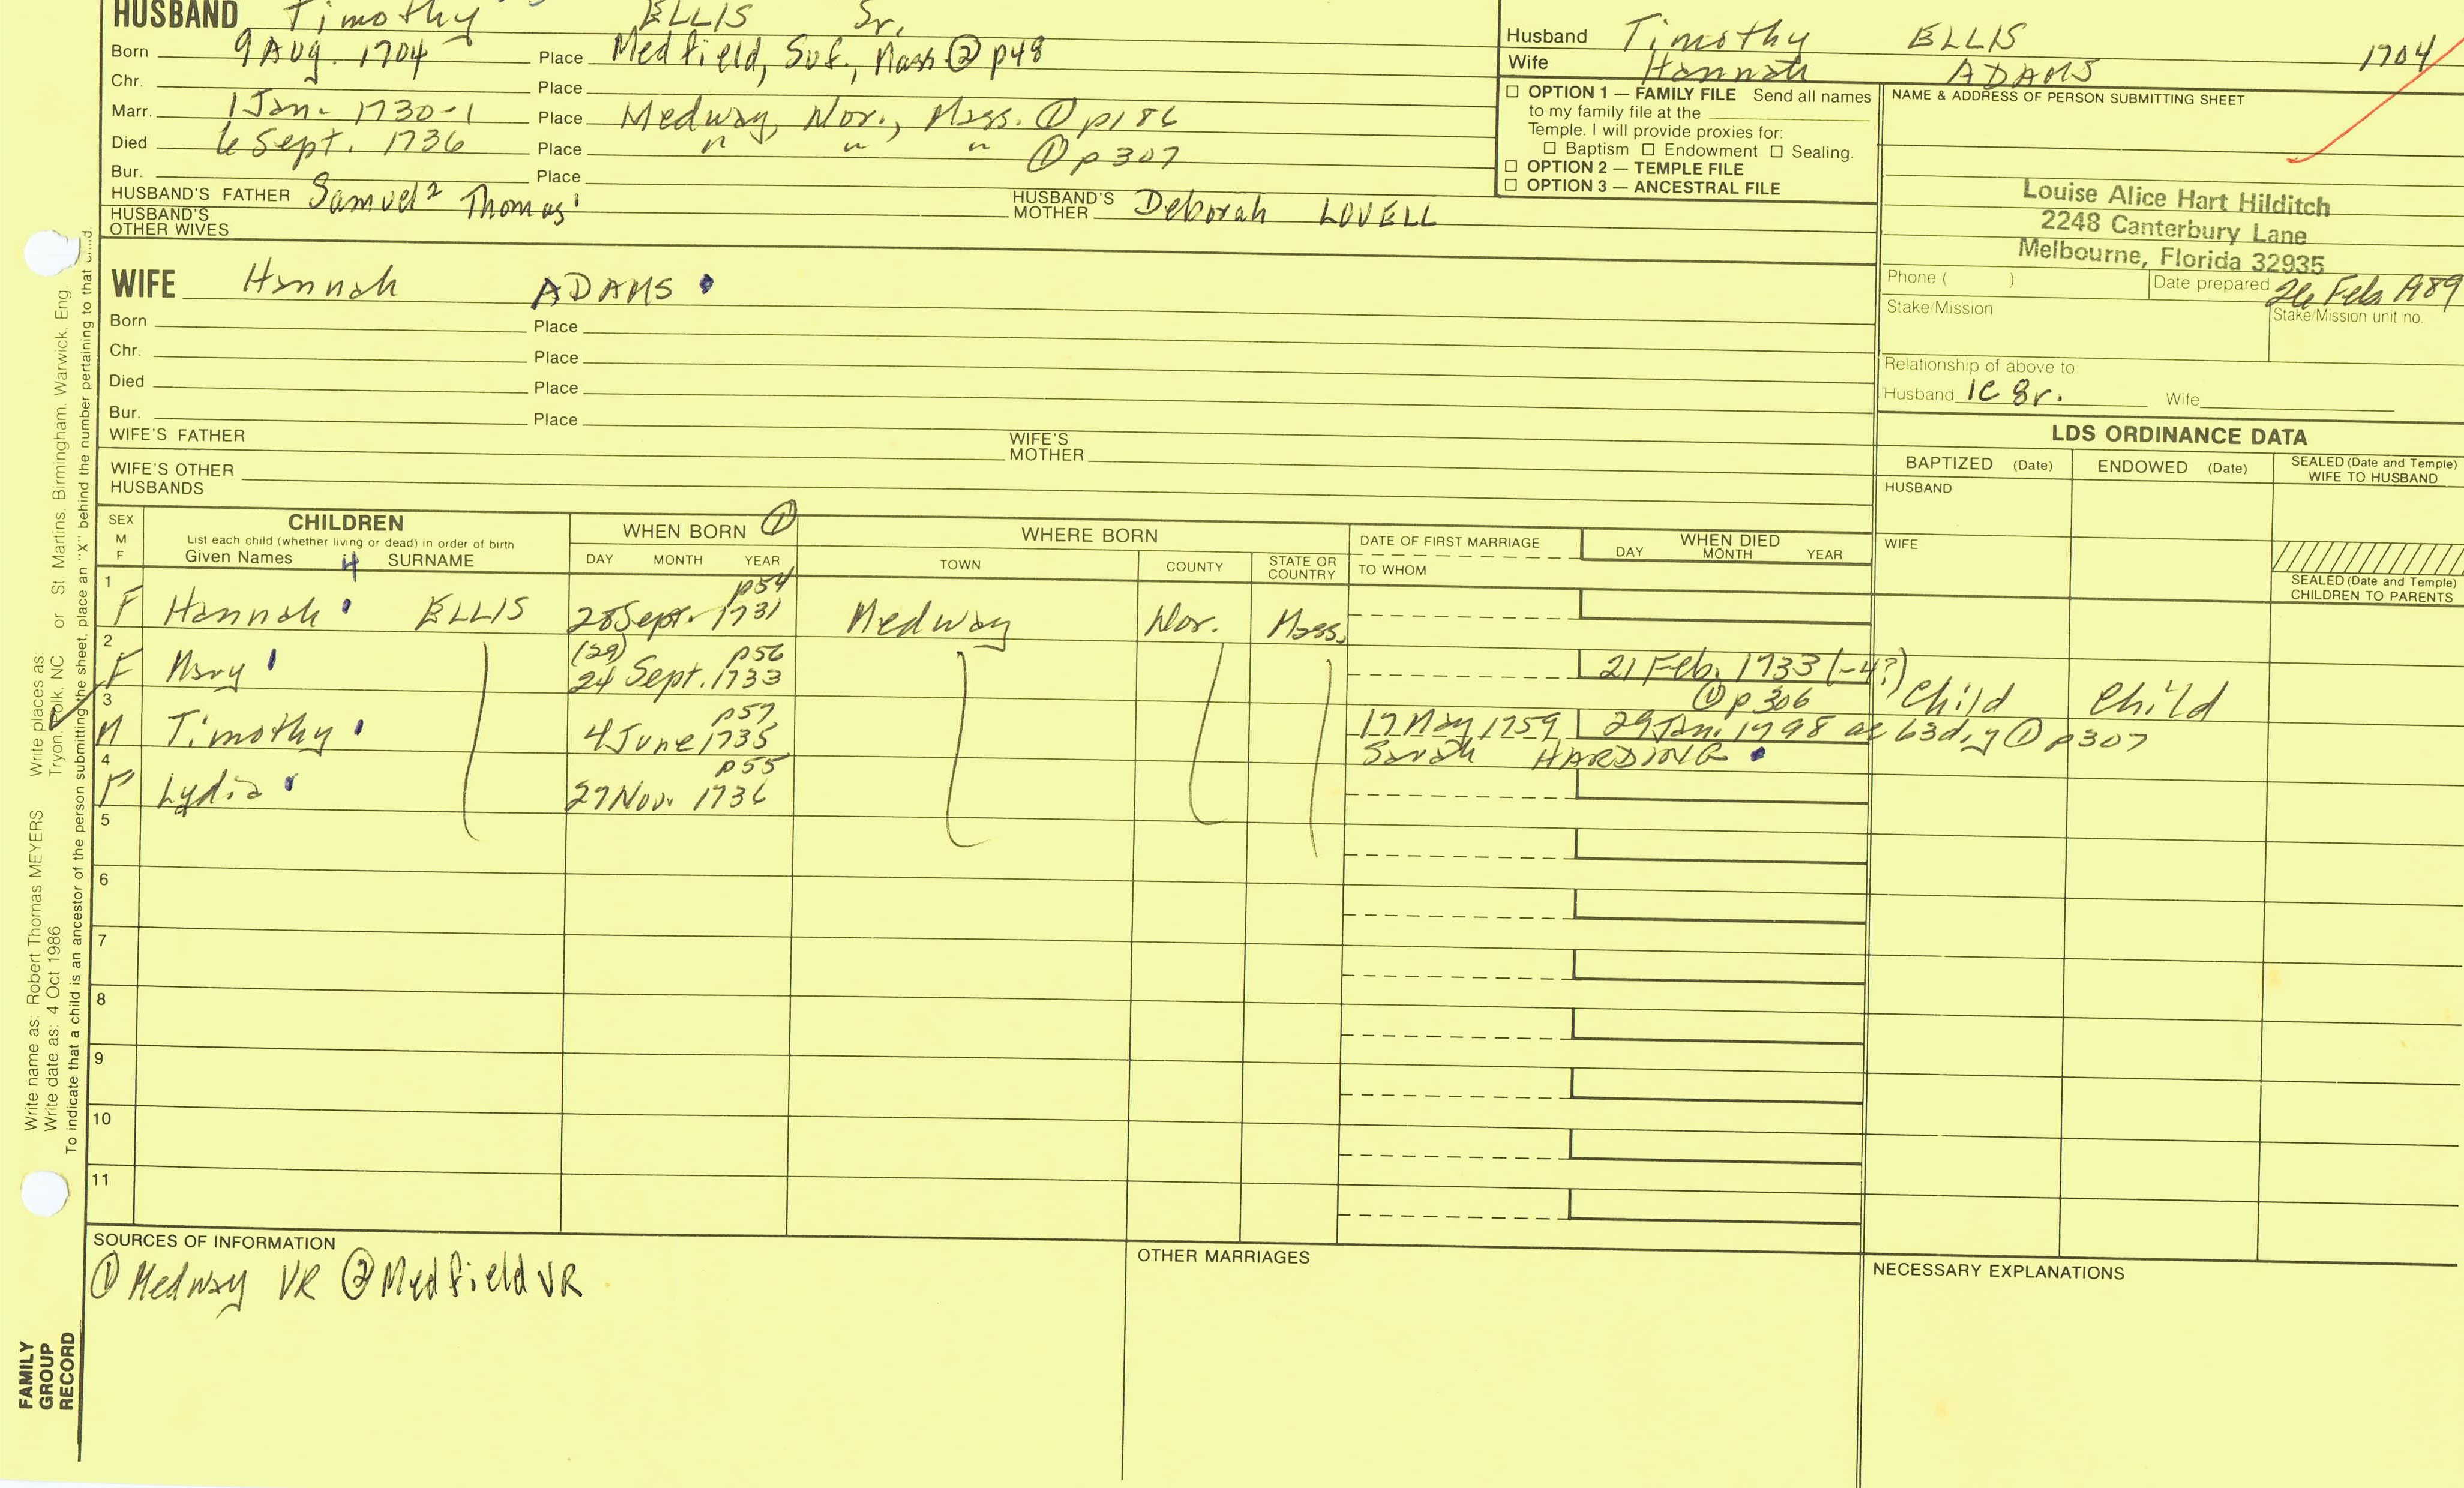 HUSBAND Timothy ELLIS Sr.
Born 9 Aug. 1704 Place Medfield, Suf., Mass ② p48
Chr. Place
Marr. 1 Jan. 1730-1 Place Medway, Nor., Mass. ① p186
Died 6 Sept. 1736 Place " " " ① p307
Bur. Place
HUSBAND'S FATHER Samuel² Thomas¹ HUSBAND'S MOTHER Deborah LOVELL
HUSBAND'S OTHER WIVES
Husband Timothy ELLIS 1704
Wife Hannah ADAMS
OPTION 1 — FAMILY FILE Send all names
to my family file at the
Temple. I will provide proxies for:
Baptism Endowment Sealing.
OPTION 2 — TEMPLE FILE
OPTION 3 — ANCESTRAL FILE
NAME & ADDRESS OF PERSON SUBMITTING SHEET
Louise Alice Hart Hilditch
2248 Canterbury Lane
Melbourne, Florida 32935
Phone ( ) Date prepared 26 Feb 1989
Stake/Mission Stake/Mission unit no.
Relationship of above to:
Husband 1C 8r. Wife
WIFE Hannah ADAMS
Born Place
Chr. Place
Died Place
Bur. Place
WIFE'S FATHER WIFE'S MOTHER
WIFE'S OTHER HUSBANDS
LDS ORDINANCE DATA
BAPTIZED (Date) ENDOWED (Date) SEALED (Date and Temple) WIFE TO HUSBAND
HUSBAND
WIFE
SEALED (Date and Temple) CHILDREN TO PARENTS
SEX M F
CHILDREN
List each child (whether living or dead) in order of birth
Given Names 4 SURNAME
WHEN BORN ①
DAY MONTH YEAR
WHERE BORN
TOWN COUNTY STATE OR COUNTRY
DATE OF FIRST MARRIAGE
TO WHOM
WHEN DIED
DAY MONTH YEAR
1 p54
F Hannah ELLIS 28 Sept. 1731 Medway Nor. Mass.
2 (29) p56
F Mary 24 Sept. 1733 21 Feb. 1733 (-4?) ① p306 Child Child
3 p57
M Timothy 4 June 1735 17 May 1759 29 Jan. 1798 ae 63d. y ① p307
Sarah HARDING
4 p55
F Lydia 27 Nov. 1736
5
6
7
8
9
10
11
SOURCES OF INFORMATION
① Medway VR ② Medfield VR
OTHER MARRIAGES
NECESSARY EXPLANATIONS
FAMILY
GROUP
RECORD
Write name as: Robert Thomas MEYERS Write places as:
Write date as: 4 Oct 1986 Tryon, Polk, NC or St Martins, Birmingham, Warwick, Eng
To indicate that a child is an ancestor of the person submitting the sheet, place an "X" behind the number pertaining to that child.